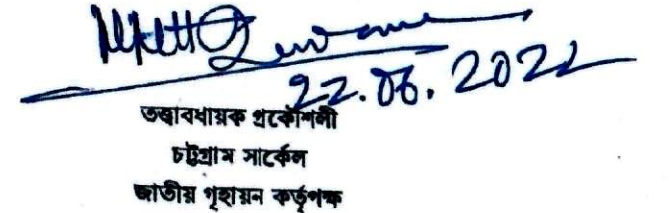 22.06.2022
তত্ত্বাবধায়ক প্রকৌশলী
চট্টগ্রাম সার্কেল
জাতীয় গৃহায়ন কর্তৃপক্ষ